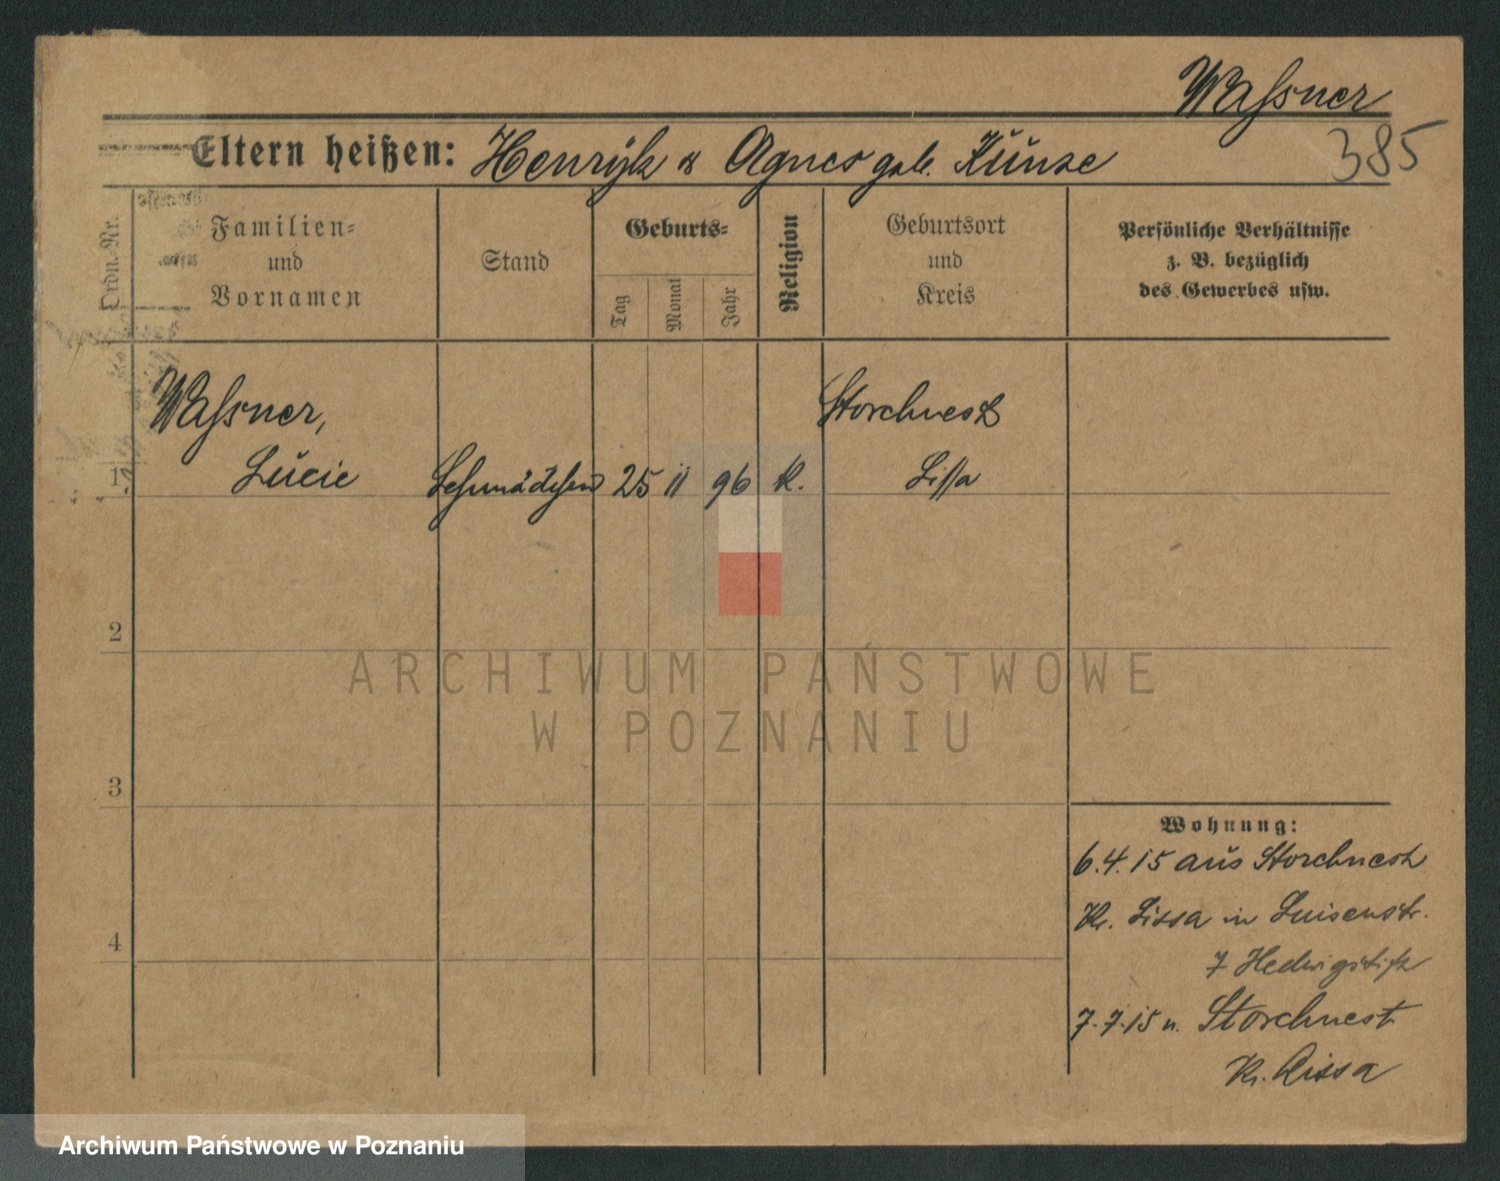 Waßner
Eltern heißen: Henryk & Agnes geb. Kunze
385
Ordn. Nr.
Familien-
und
Vornamen
Stand
Geburts-
Tag
Monat
Jahr
Religion
Geburtsort
und
Kreis
Persönliche Verhältnisse
z. B. bezüglich
des Gewerbes usw.
Waßner,
Storchnest
1 Lucie 25 11 96 k. Lissa
2
3
4
Wohnung:
6.4.15 aus Storchnest
Kr. Lissa in Luisenstr.
7 Hedwigstift
7.7.15 n. Storchnest
Kr. Lissa
ARCHIWUM PAŃSTWOWE
W POZNANIU
Archiwum Państwowe w Poznaniu